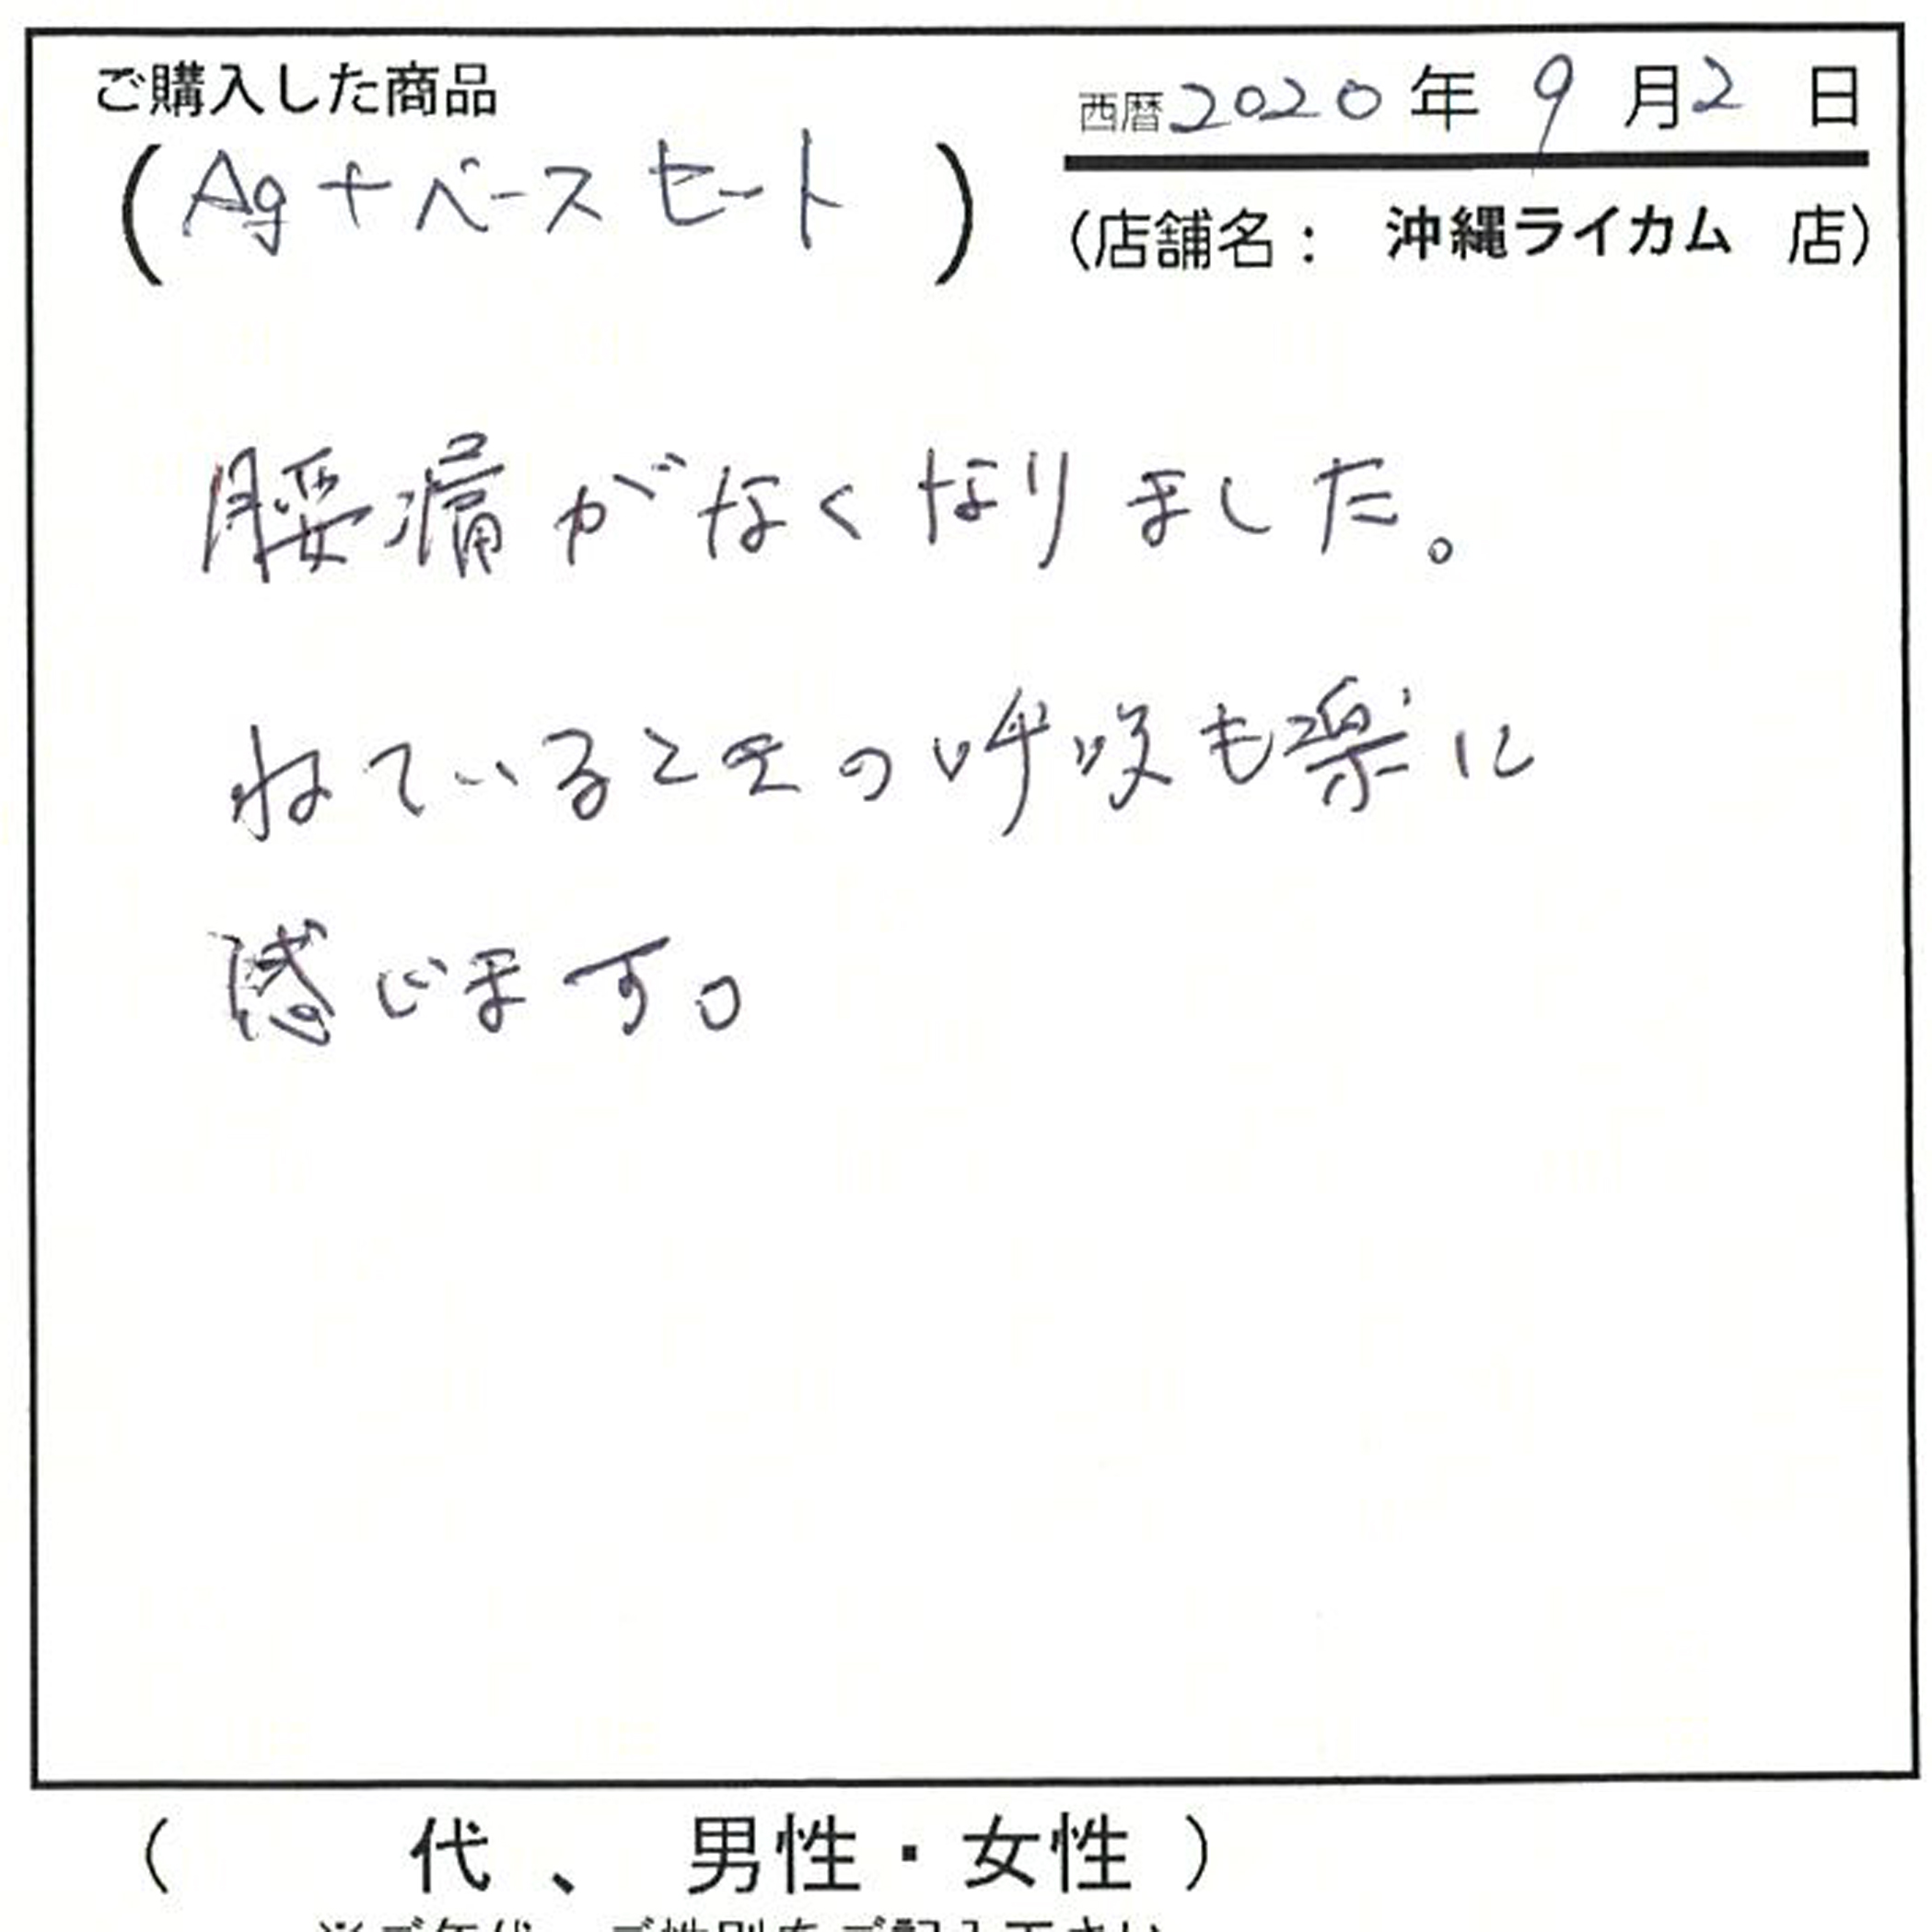 ご購入した商品
西暦2020年 9月2日
(Ag+ベースセート)
(店舗名: 沖縄ライカム 店)
腰痛がなくなりました。
ねているときの呼吸も楽に
感じます。
( 代、 男性・女性 )
※ご年代、ご性別をご記入下さい